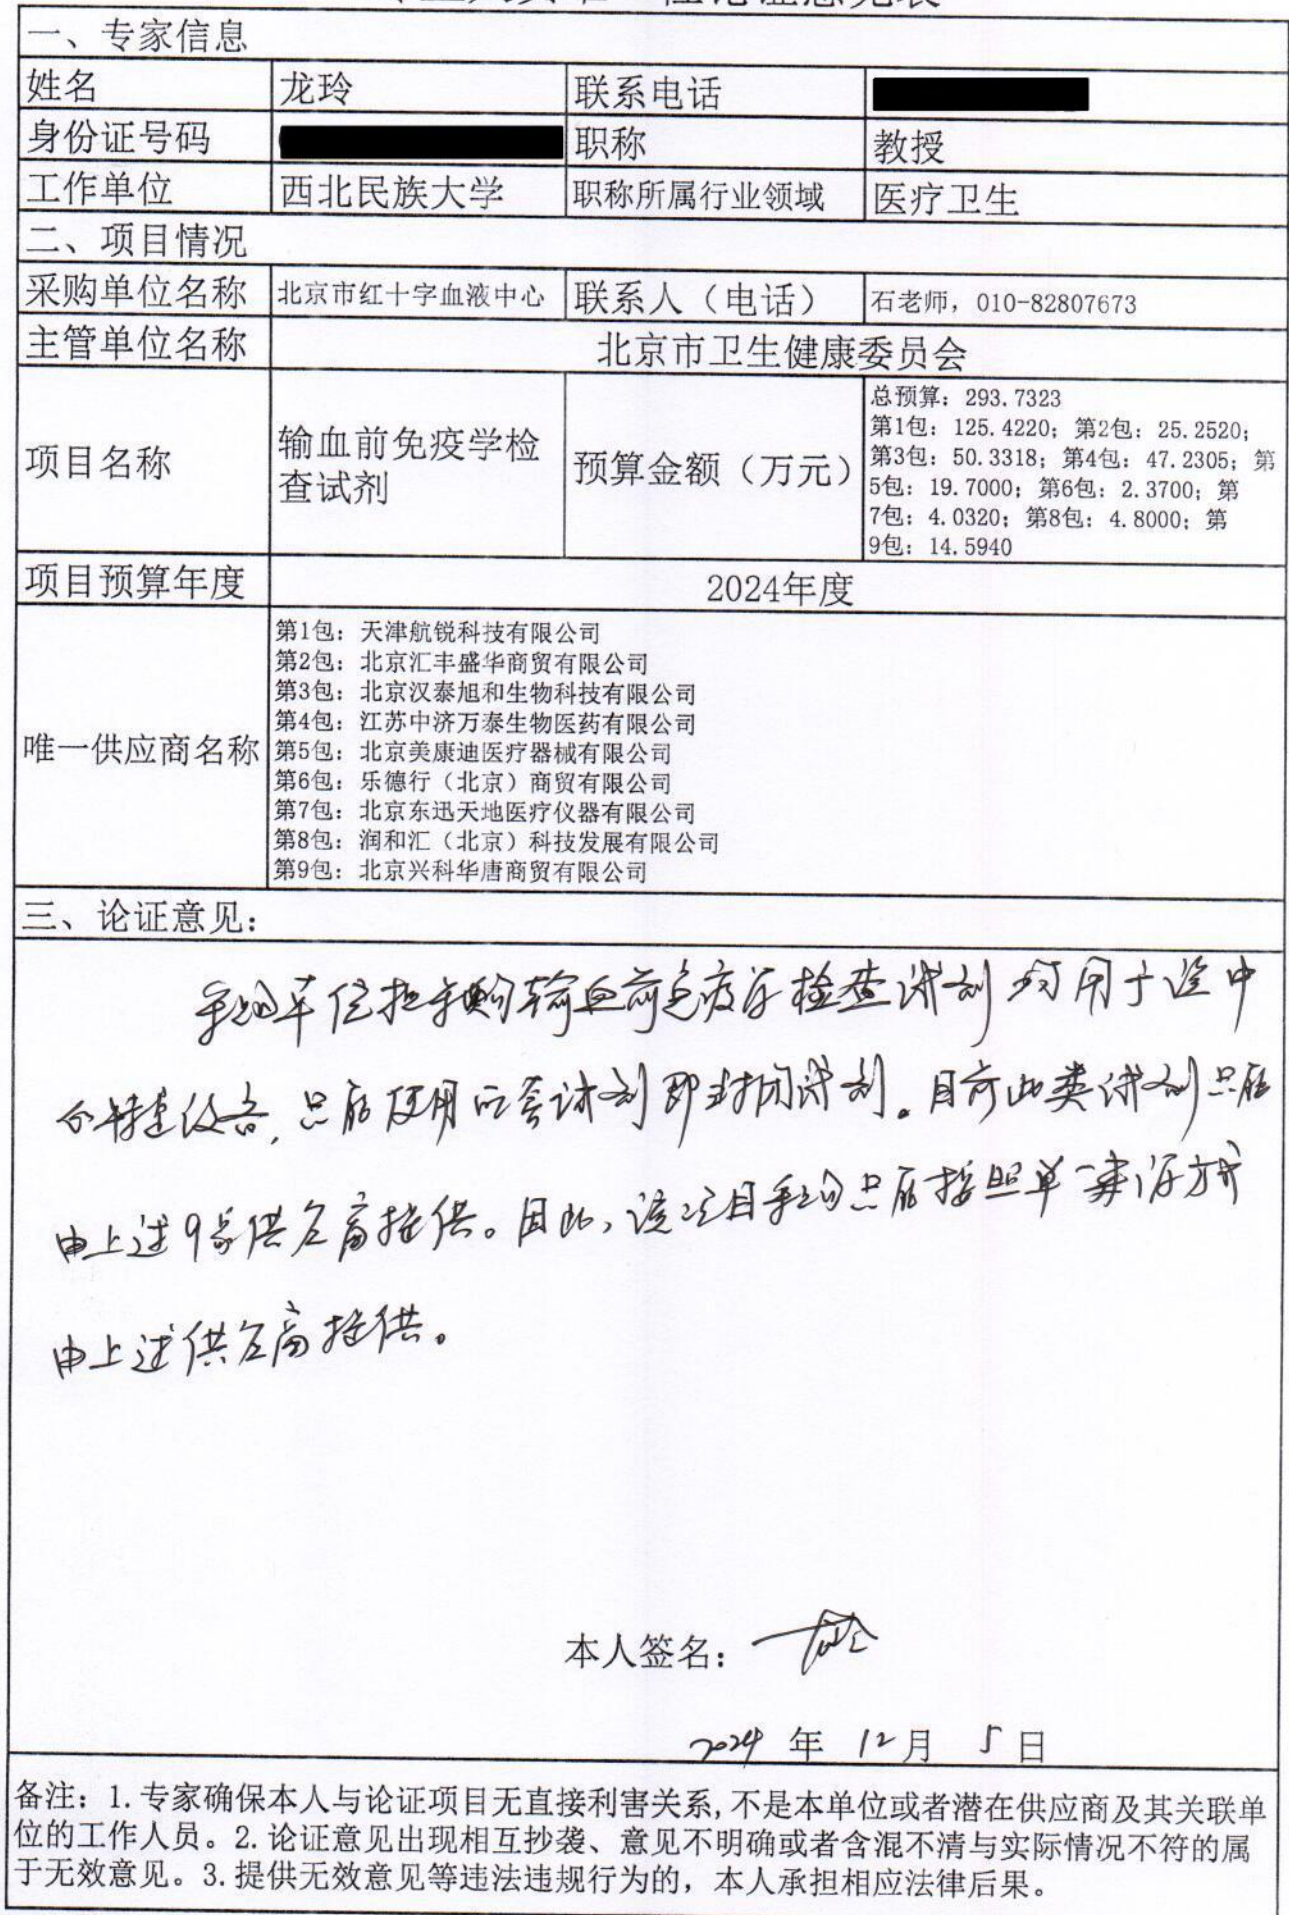 一、专家信息
姓名 龙玲 联系电话
身份证号码 职称 教授
工作单位 西北民族大学 职称所属行业领域 医疗卫生
二、项目情况
采购单位名称 北京市红十字血液中心 联系人（电话） 石老师，010-82807673
主管单位名称 北京市卫生健康委员会
项目名称 输血前免疫学检
查试剂
预算金额（万元）
总预算：293.7323
第1包：125.4220；第2包：25.2520；
第3包：50.3318；第4包：47.2305；第
5包：19.7000；第6包：2.3700；第
7包：4.0320；第8包：4.8000；第
9包：14.5940
项目预算年度 2024年度
唯一供应商名称
第1包：天津航锐科技有限公司
第2包：北京汇丰盛华商贸有限公司
第3包：北京汉泰旭和生物科技有限公司
第4包：江苏中济万泰生物医药有限公司
第5包：北京美康迪医疗器械有限公司
第6包：乐德行（北京）商贸有限公司
第7包：北京东迅天地医疗仪器有限公司
第8包：润和汇（北京）科技发展有限公司
第9包：北京兴科华唐商贸有限公司
三、论证意见：
采购单位拟采购输血前免疫学检查试剂均用于该中
心特定设备，只能使用配套试剂即封闭试剂。目前此类试剂只能
由上述9家供应商提供。因此，该项目采购只能按照单一来源方式
由上述供应商提供。
本人签名：
2024 年 12 月 5 日
备注：1.专家确保本人与论证项目无直接利害关系,不是本单位或者潜在供应商及其关联单
位的工作人员。2.论证意见出现相互抄袭、意见不明确或者含混不清与实际情况不符的属
于无效意见。3.提供无效意见等违法违规行为的，本人承担相应法律后果。